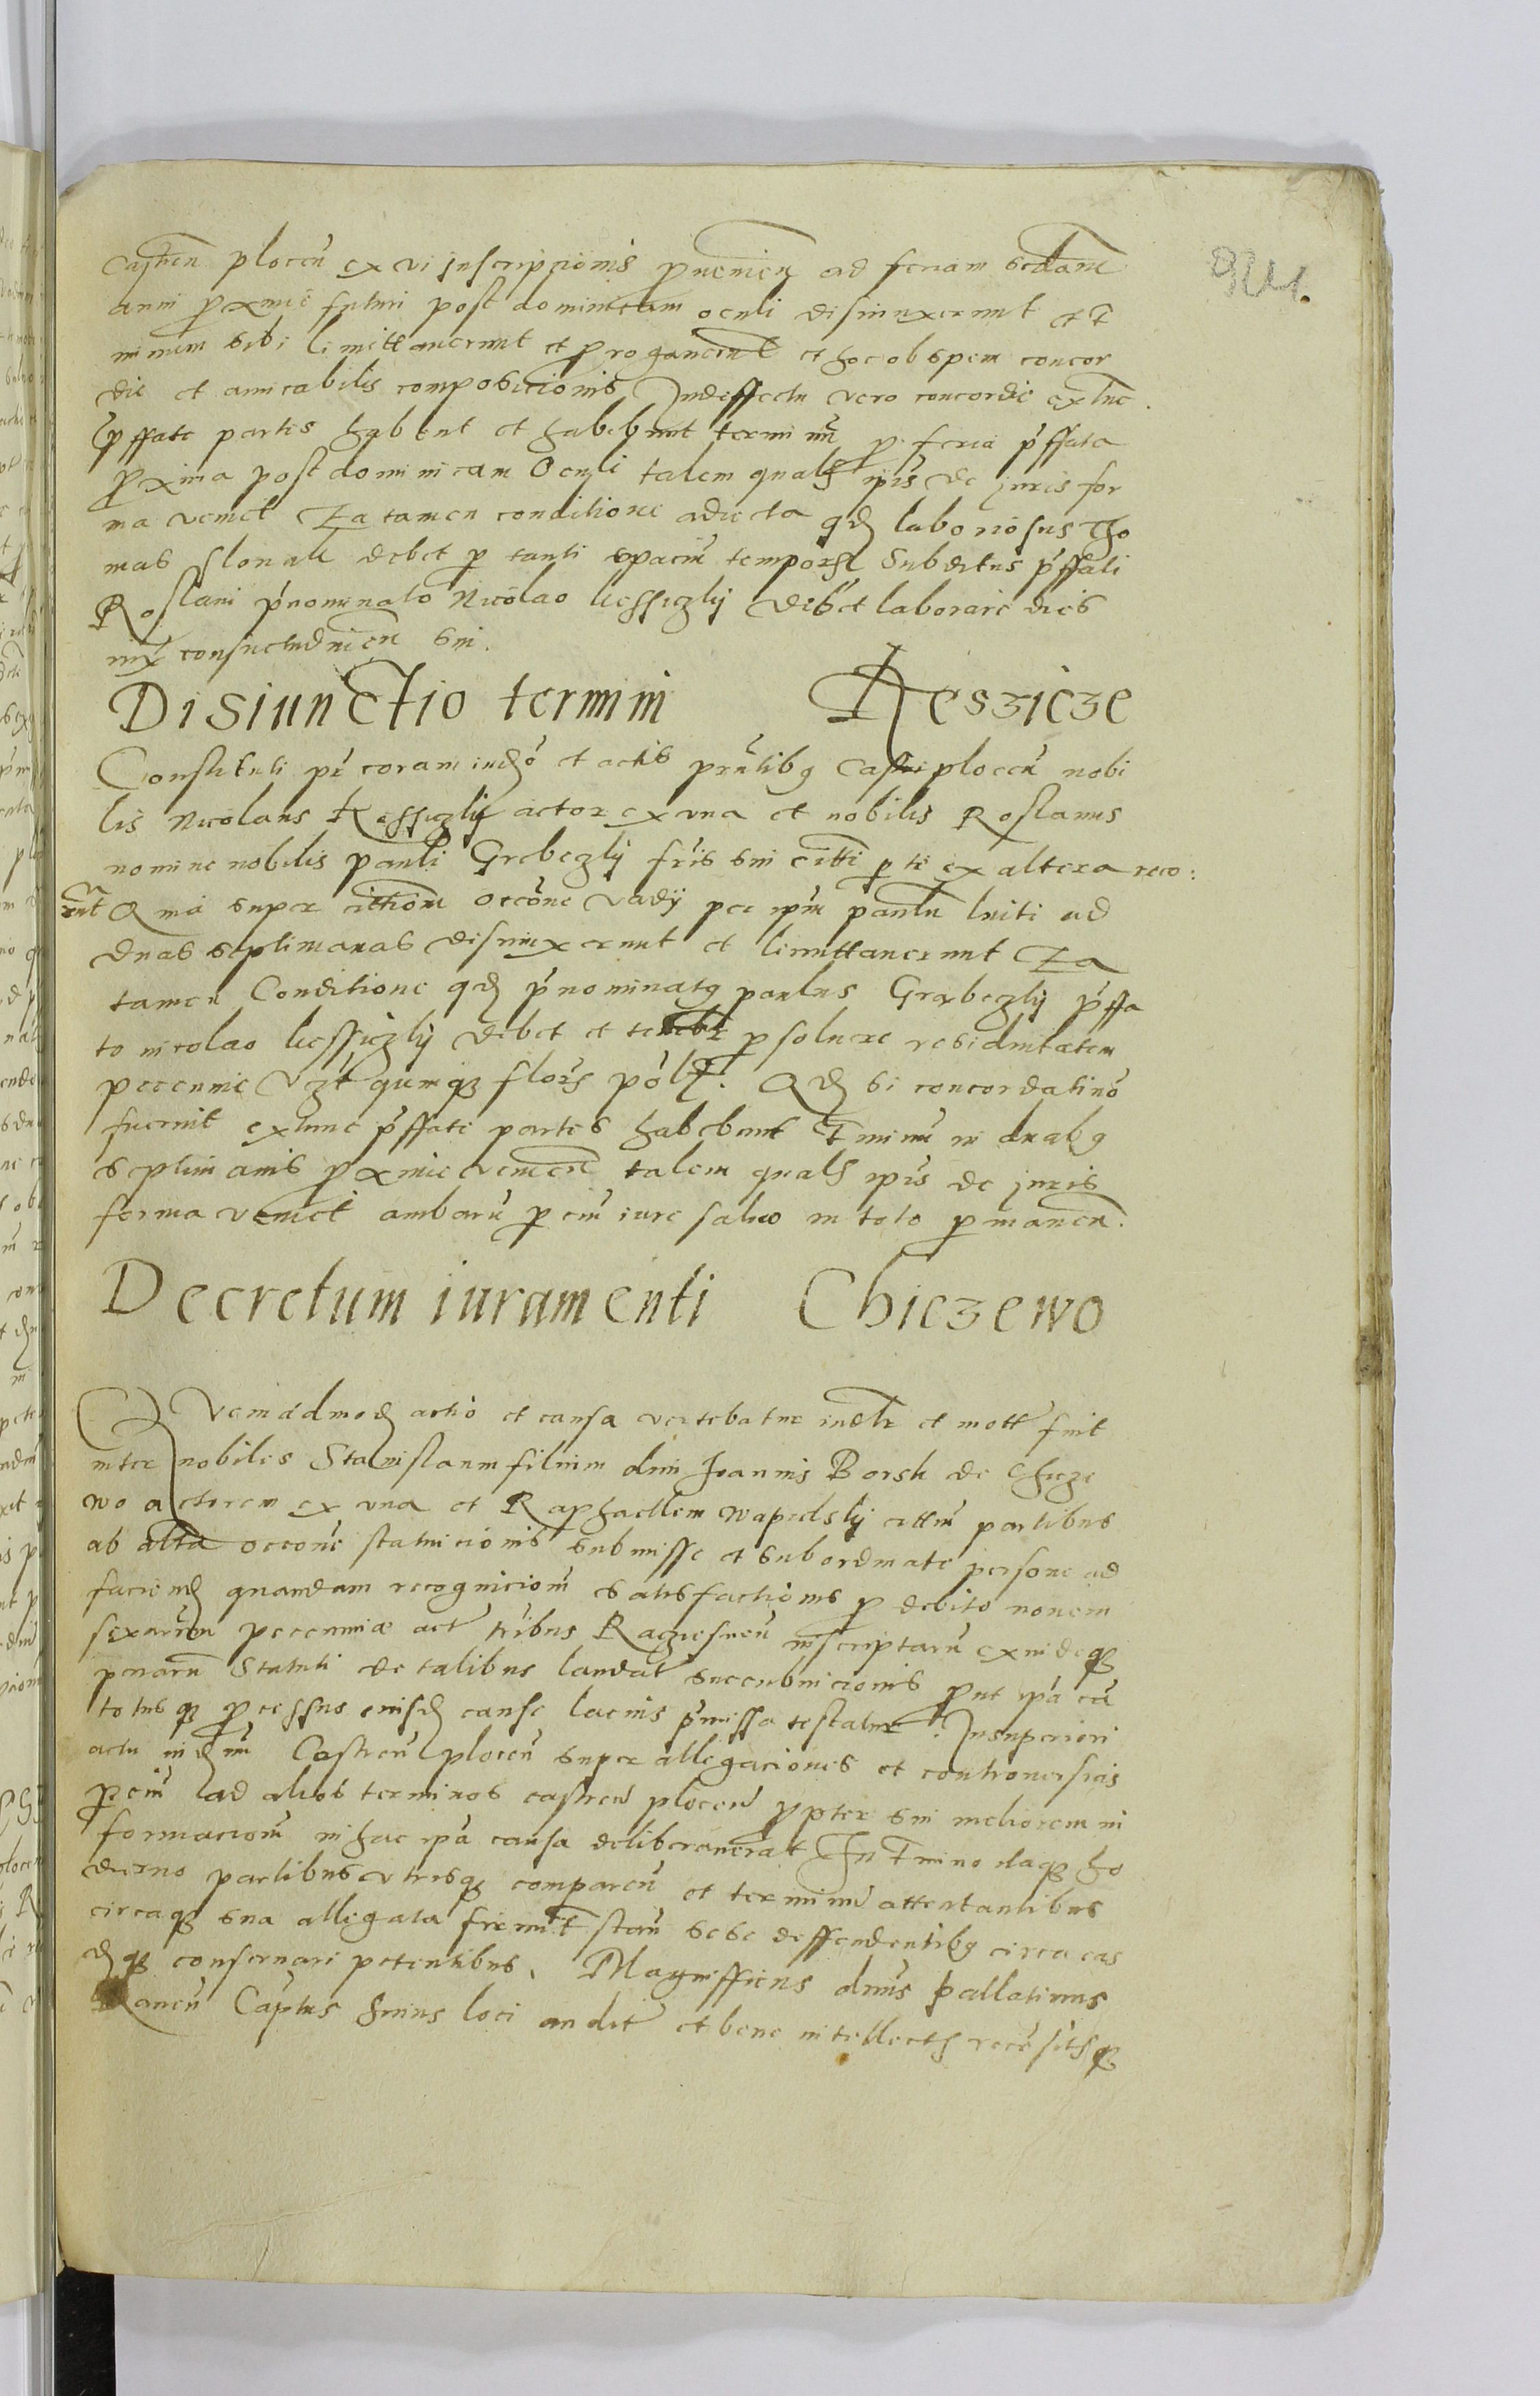 924.
castren plocen ex vi Inscripcionis provenien ad feriam sedam
anni proxime futuri post dominicam oculi disiunxerunt et ter
minum sibi limittauerunt et prorogauerunt et hoc ob spem concor
die et amicabilis composicionis Indeffectu vero concordie extunc
pffate partes habent et habebunt terminu pro feria pffata
proxima post dominicam Oculi talem qualem ipis de juris for
ma veniet Ea tamen conditione adiecta qd laboriosus Tho
mas debet p tanti spaciu temporis Subditus pffati
Roslani pnominato Nicolao kessiczky debet laborare dies
iux consuetudinem sui.
Disiunctio termini Keszicze
Constituti pr coram iudo et actis pntibq Castri plocen nobi
lis Nicolaus Kessiczky actor ex vna et nobilis Roslanus
nomine nobilis pauli Grebeczky fris sui citti p te ex altera reco:
runt Q ma super occone vadij per ipm paulu luiti ad
duas septimanas disiunxerunt et limittauerunt Ea
tamen Conditione qd pnominatq paulus Grabeczky pffa
to nicolao kessiczky debet et tenebr p soluere residuitatem
peccunie vzt quinqz flors pol. Qd si concordati no
fuerint extunc pffate partes habebunt Tminu in duabq
septimanis proxime venien talem qualem ipis de juris
forma veniet ambaru p ciu iure saluo in toto p manen.
Decretum iuramenti Chiczewo
Quemadmod actio et causa vertebatur et mott fuit
inter nobiles Stanislaum filium dni Joannis Borsk de Chicze
wo actorem ex vna et Raphaellem wapielsky cittm partibus
ab alta occone statuicionis submisse et subordinate persone ad
faciend quandam recognicionm satisfactionis p debito nouem
sexaren peccuniæ act tribus Raczesneu inscriptaru exindeqz
penaru Statuti de talibus laudat succubuicionis put ipa ca
totusqz pcessus eiusd cause lacius pmissa testatur. Insuperiori
actu Castren plocen super allegaciones et controuersias
p ciu ad alios terminos castren plocen ppter sui meliorem in
formacionm in hac ipa causa deliberauerat In Tmino itaqz ho
dierno partibus vtrisqz comparen et terminu attentantibus
circaqz sua allegata sese deffendentibq circa eas
dqz conseruari petentibus. Magnifficus dnus pallatinus
Rauen Captus huius loci audit et bene intellectis